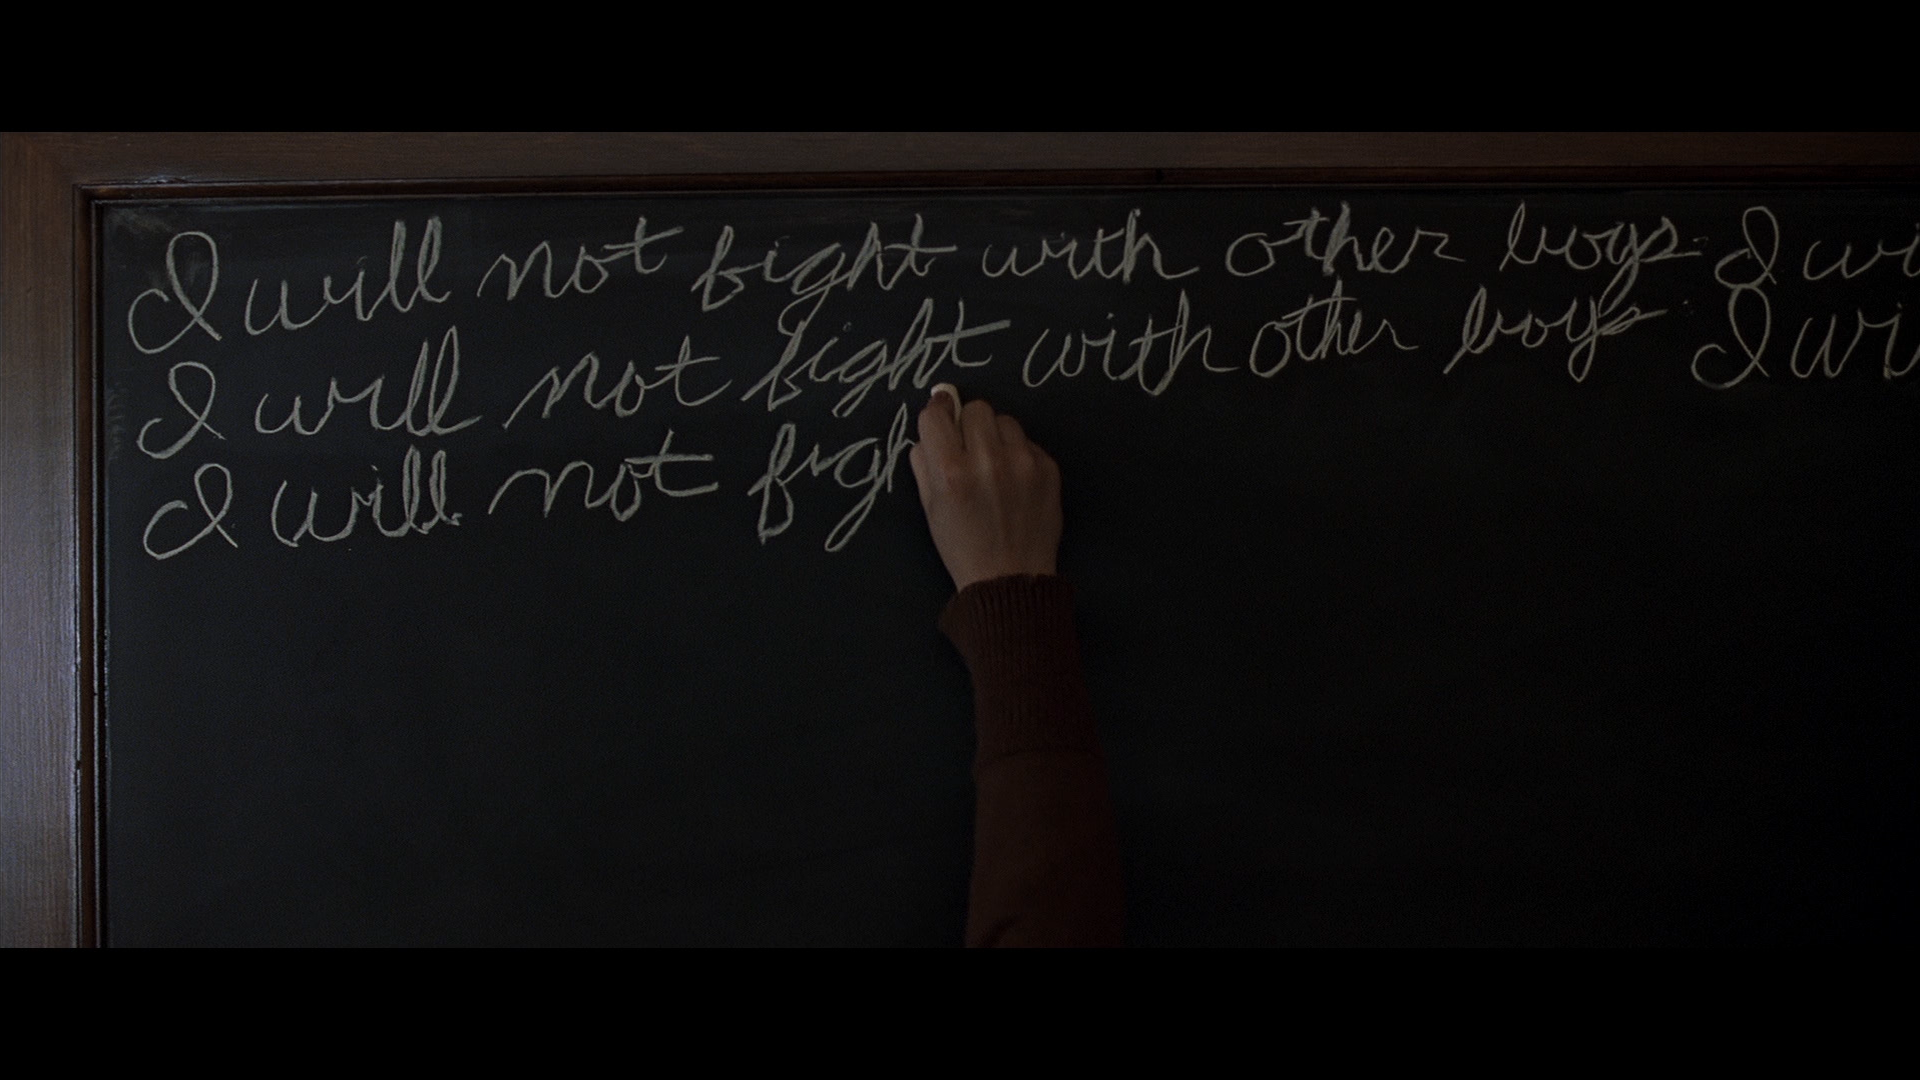 I will not fight with other boys. I wi
I will not fight with other boys. I wi
I will not figh